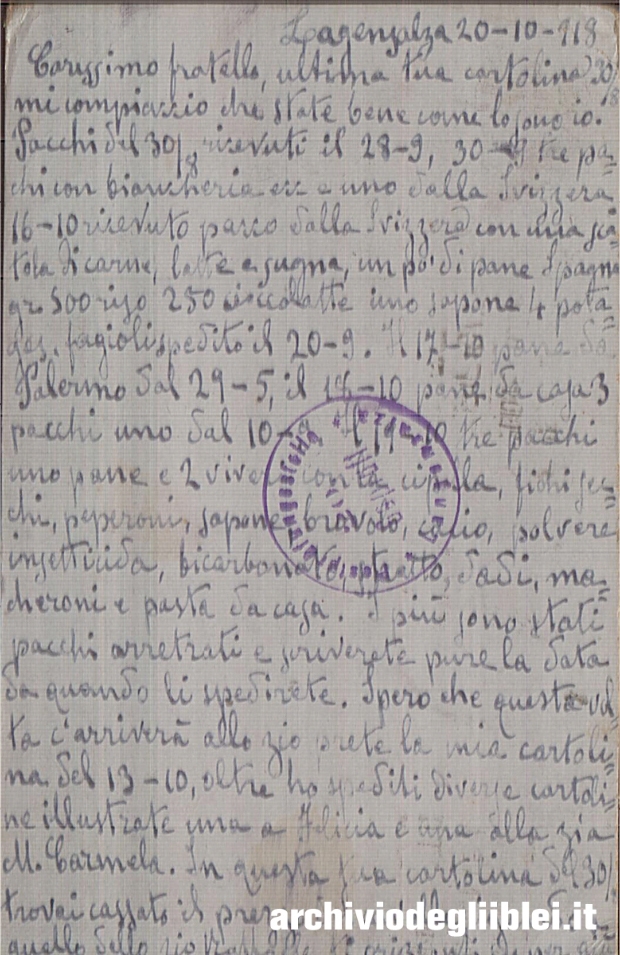 Lagensalza 20-10-918
Carissimo fratello, ultima tua cartolina 30/8
mi compiaccio che state bene come lo sono io.
Pacchi del 30/8 ricevuti il 28-9, 30-9 tre pa=
chi con biancheria ecc e uno dalla Svizzera
16-10 ricevuto pacco dalla Svizzera con una sca=
tola di carne, latte e sugna, un po' di pane Spagna
gr. 500 riso 250 cioccolatte uno sapone 4 pota=
ges. fagioli spedito il 20-9. Il 17-10 pane da
Palermo dal 29-5, il 18-10 pane da casa 3
pacchi uno dal 10-9. Il 19-10 tre pacchi
uno pane e 2 viveri con cipolla, fichi sec=
chi, peperoni, sapone, bravolo, cacio, polvere
insetticida, bicarbonato, stratto, dadi, ma=
cheroni e pasta da casa. I più sono stati
pacchi arretrati e scriverete pure la data
da quando li spedirete. Spero che questa vol=
ta c'arriverà allo zio prete la mia cartoli=
na del 13-10, oltre ho spediti diverse cartoli=
ne illustrate una a Felicia e una alla zia
M. Carmela. In questa tua cartolina del 30/
trovai cassato il
quello dello zio
archiviodegliiblei.it